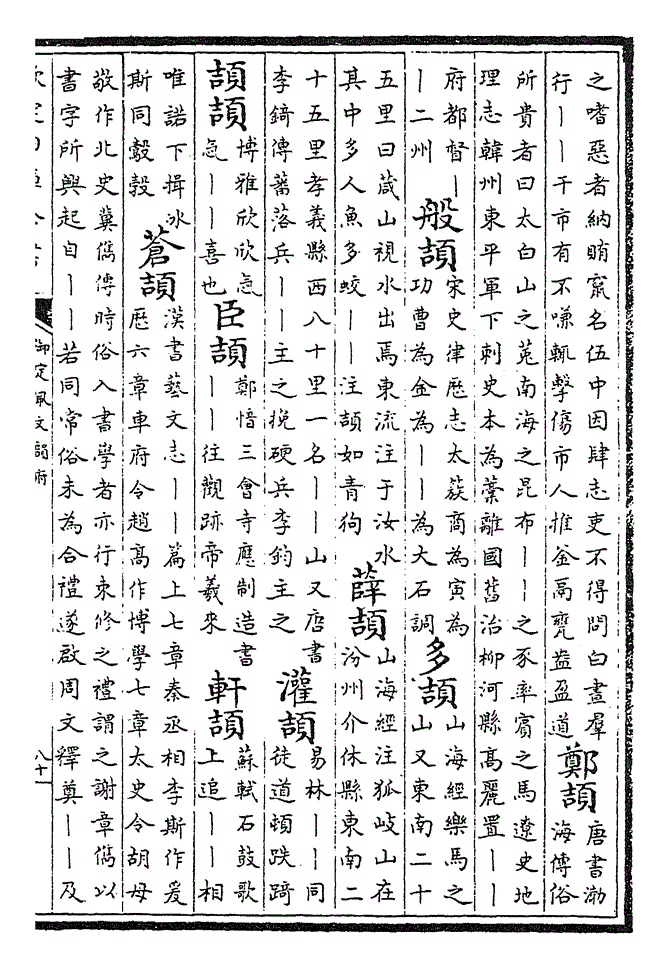 之嗜惡者納賄竄名伍中因肆志吏不得問白晝羣
行丨丨于市有不嗛輒擊傷市人推釜鬲甕盎盈道
鄭頡
唐書渤
海傳俗
所貴者曰太白山之菟南海之昆布丨丨之豕率賓之馬遼史地
理志韓州東平軍下刺史本為藁離國舊治柳河縣高麗置丨丨
府都督丨
丨二州
般頡
宋史律厯志太蔟商為寅為
功曹為金為丨丨為大石調
多頡
山海經樂馬之
山又東南二十
五里曰葴山視水出焉東流注于汝水
其中多人魚多蛟丨丨注頡如青狗
薛頡
山海經注狐岐山在
汾州介休縣東南二
十五里孝義縣西八十里一名丨丨山又唐書
李錡傳蕃落兵丨丨主之挽硬兵李鈞主之
灌頡
易林丨丨同
徒道頓跌踦
頡頡
博雅欣欣忥
忥丨丨喜也
臣頡
鄭愔三會寺應制造書
丨丨往觀跡帝羲來
軒頡
蘇軾石鼓歌
上追丨丨相
唯諾下揖冰
斯同鷇㝅
蒼頡
漢書藝文志丨丨篇上七章秦丞相李斯作爰
厯六章車府令趙高作博學七章太史令胡母
敬作北史冀儁傳時俗入書學者亦行束修之禮謂之謝章儁以
書字所興起自丨丨若同常俗未為合禮遂啟周文釋奠丨丨及
御定佩文韻府
八十